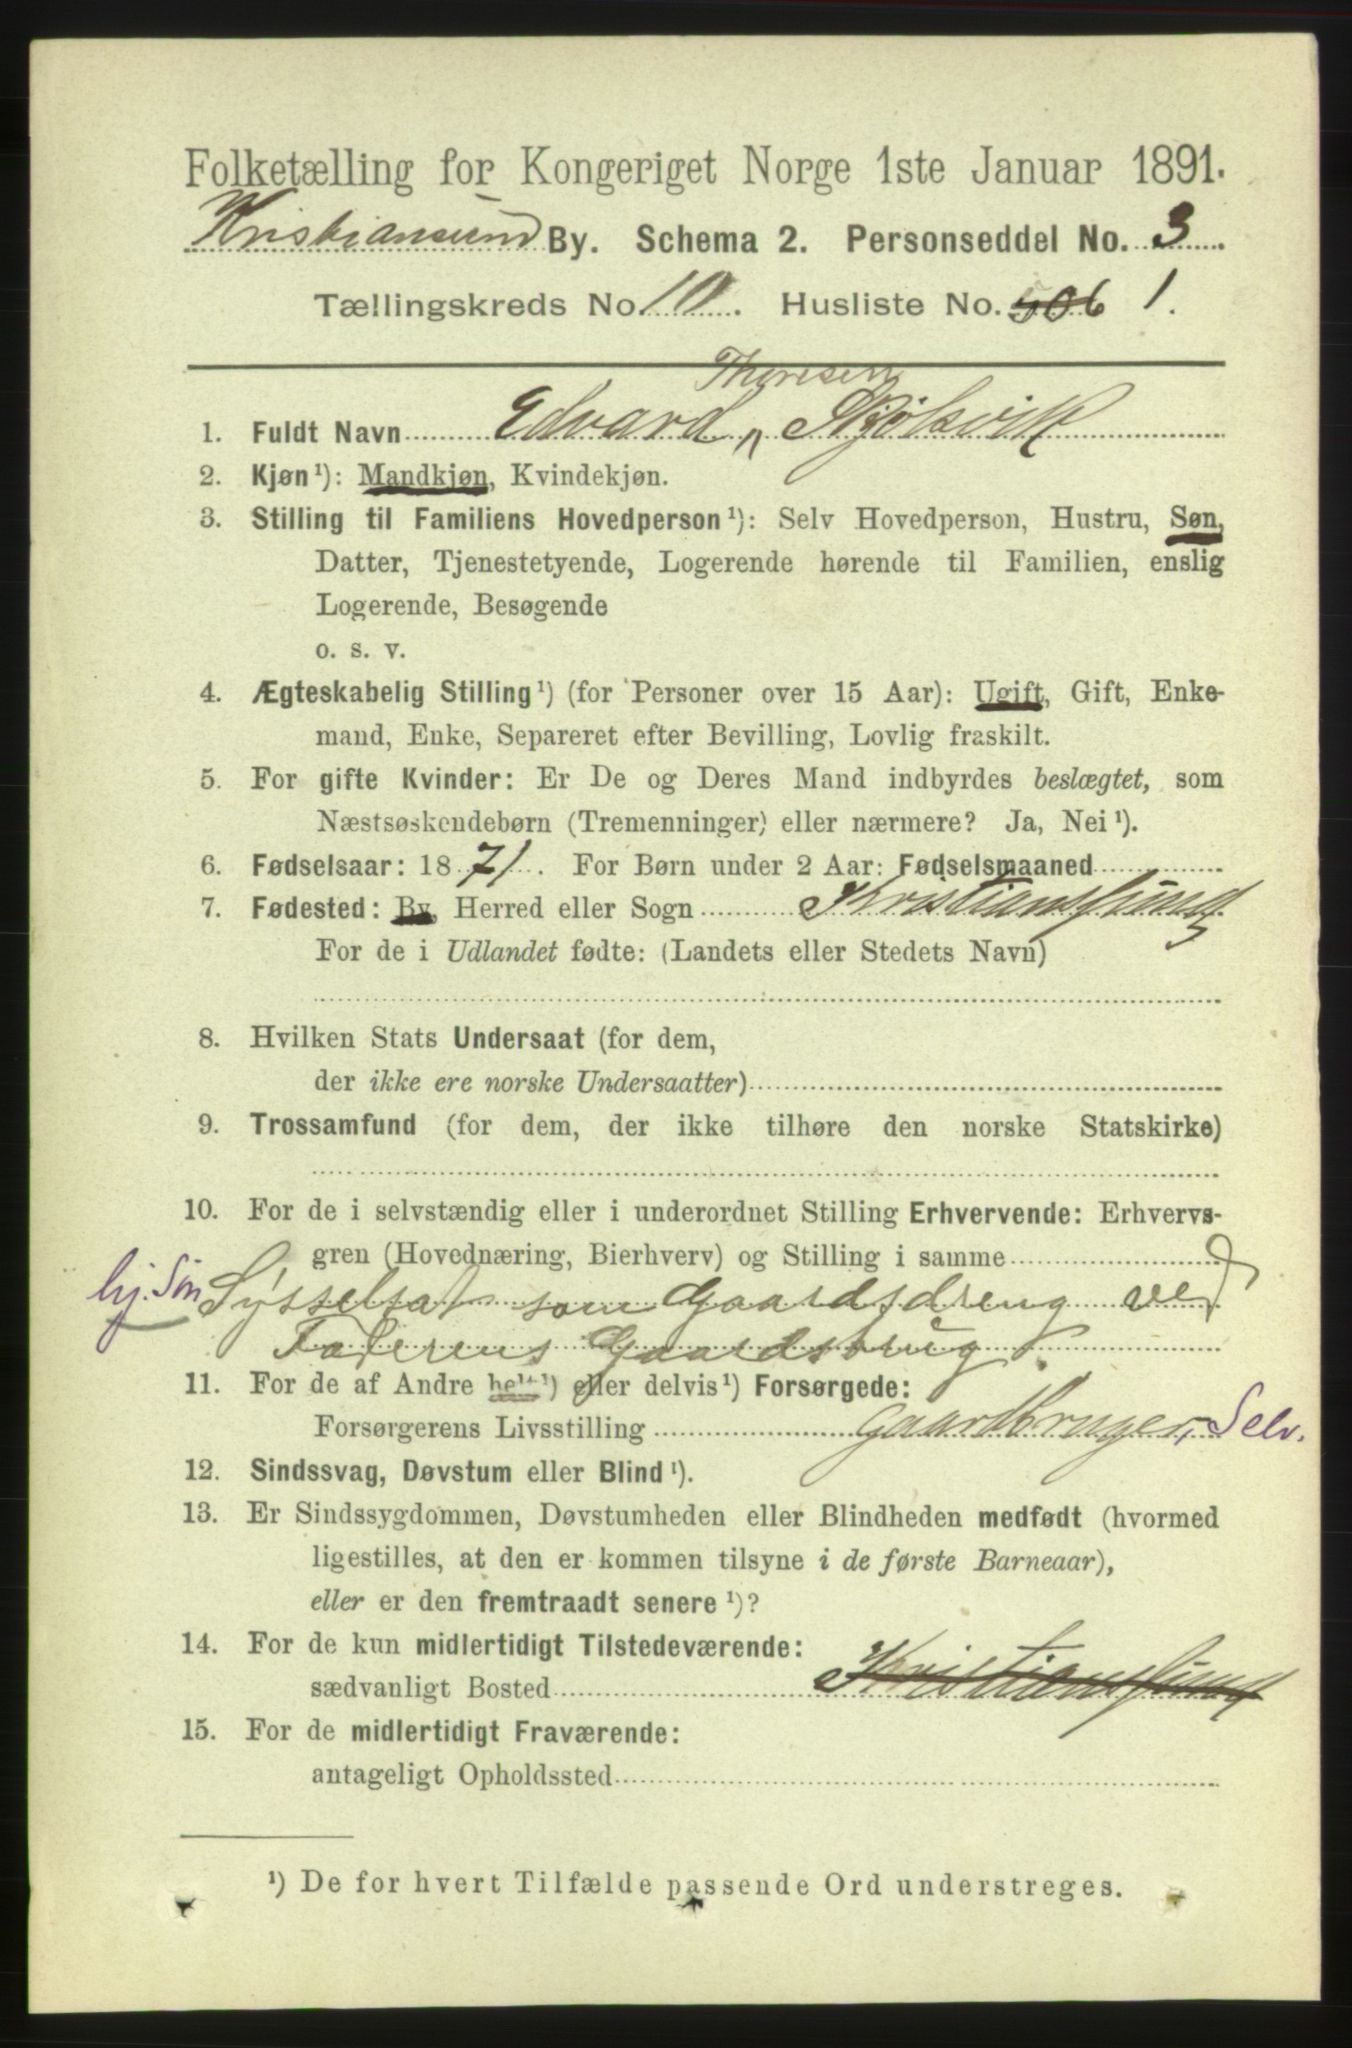 Folketælling for Kongeriget Norge 1ste Januar 1891.
Kristiansund By. Schema 2. Personseddel No. 3
Tællingskreds No. 10. Husliste No. 506 1.
Thoresen
1. Fuldt Navn Edvard Skjølsvik
2. Kjøn ¹): Mandkjøn, Kvindekjøn.
3. Stilling til Familiens Hovedperson ¹): Selv Hovedperson, Hustru, Søn,
Datter, Tjenestetyende, Logerende hørende til Familien, enslig
Logerende, Besøgende
o. s. v.
4. Ægteskabelig Stilling ¹) (for Personer over 15 Aar): Ugift, Gift, Enke-
mand, Enke, Separeret efter Bevilling, Lovlig fraskilt.
5. For gifte Kvinder: Er De og Deres Mand indbyrdes beslægtet, som
Næstsøskendebørn (Tremenninger) eller nærmere? Ja, Nei ¹).
6. Fødselsaar: 1871. For Børn under 2 Aar: Fødselsmaaned
7. Fødested: By, Herred eller Sogn Kristianssund
For de i Udlandet fødte: (Landets eller Stedets Navn)
8. Hvilken Stats Undersaat (for dem,
der ikke ere norske Undersaatter)
9. Trossamfund (for dem, der ikke tilhøre den norske Statskirke)
10. For de i selvstændig eller i underordnet Stilling Erhvervende: Erhvervs-
gren (Hovednæring, Bierhverv) og Stilling i samme
hj. Søn Sysselsat som Gaardsdreng ved
Faderens Gaardsbrug.
11. For de af Andre helt ¹) eller delvis ¹) Forsørgede:
Forsørgerens Livsstilling Gaardbruger, Selv.
12. Sindssvag, Døvstum eller Blind ¹).
13. Er Sindssygdommen, Døvstumheden eller Blindheden medfødt (hvormed
ligestilles, at den er kommen tilsyne i de første Barneaar),
eller er den fremtraadt senere ¹)?
14. For de kun midlertidigt Tilstedeværende:
sædvanligt Bosted Kristianssund
15. For de midlertidigt Fraværende:
antageligt Opholdssted
¹) De for hvert Tilfælde passende Ord understreges.